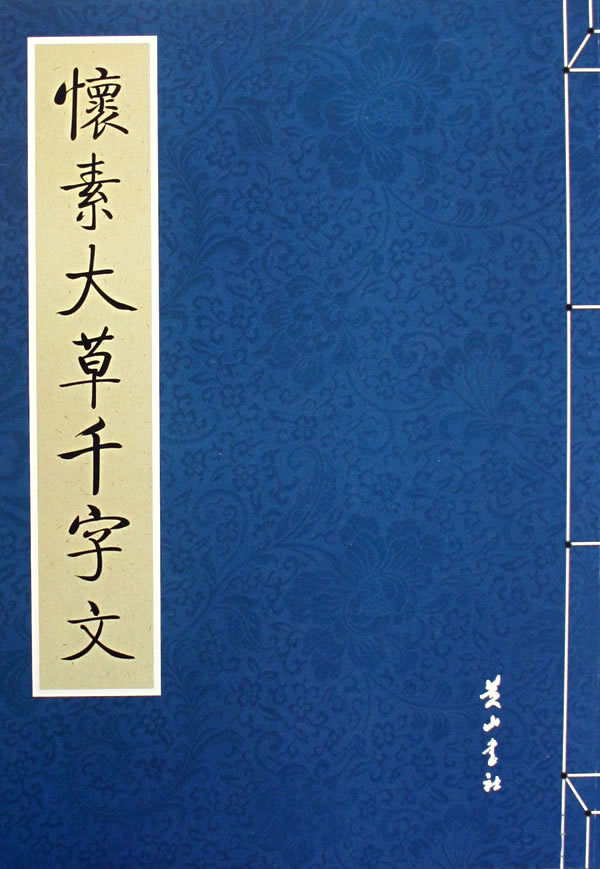 懷素大草千字文
黄山书社